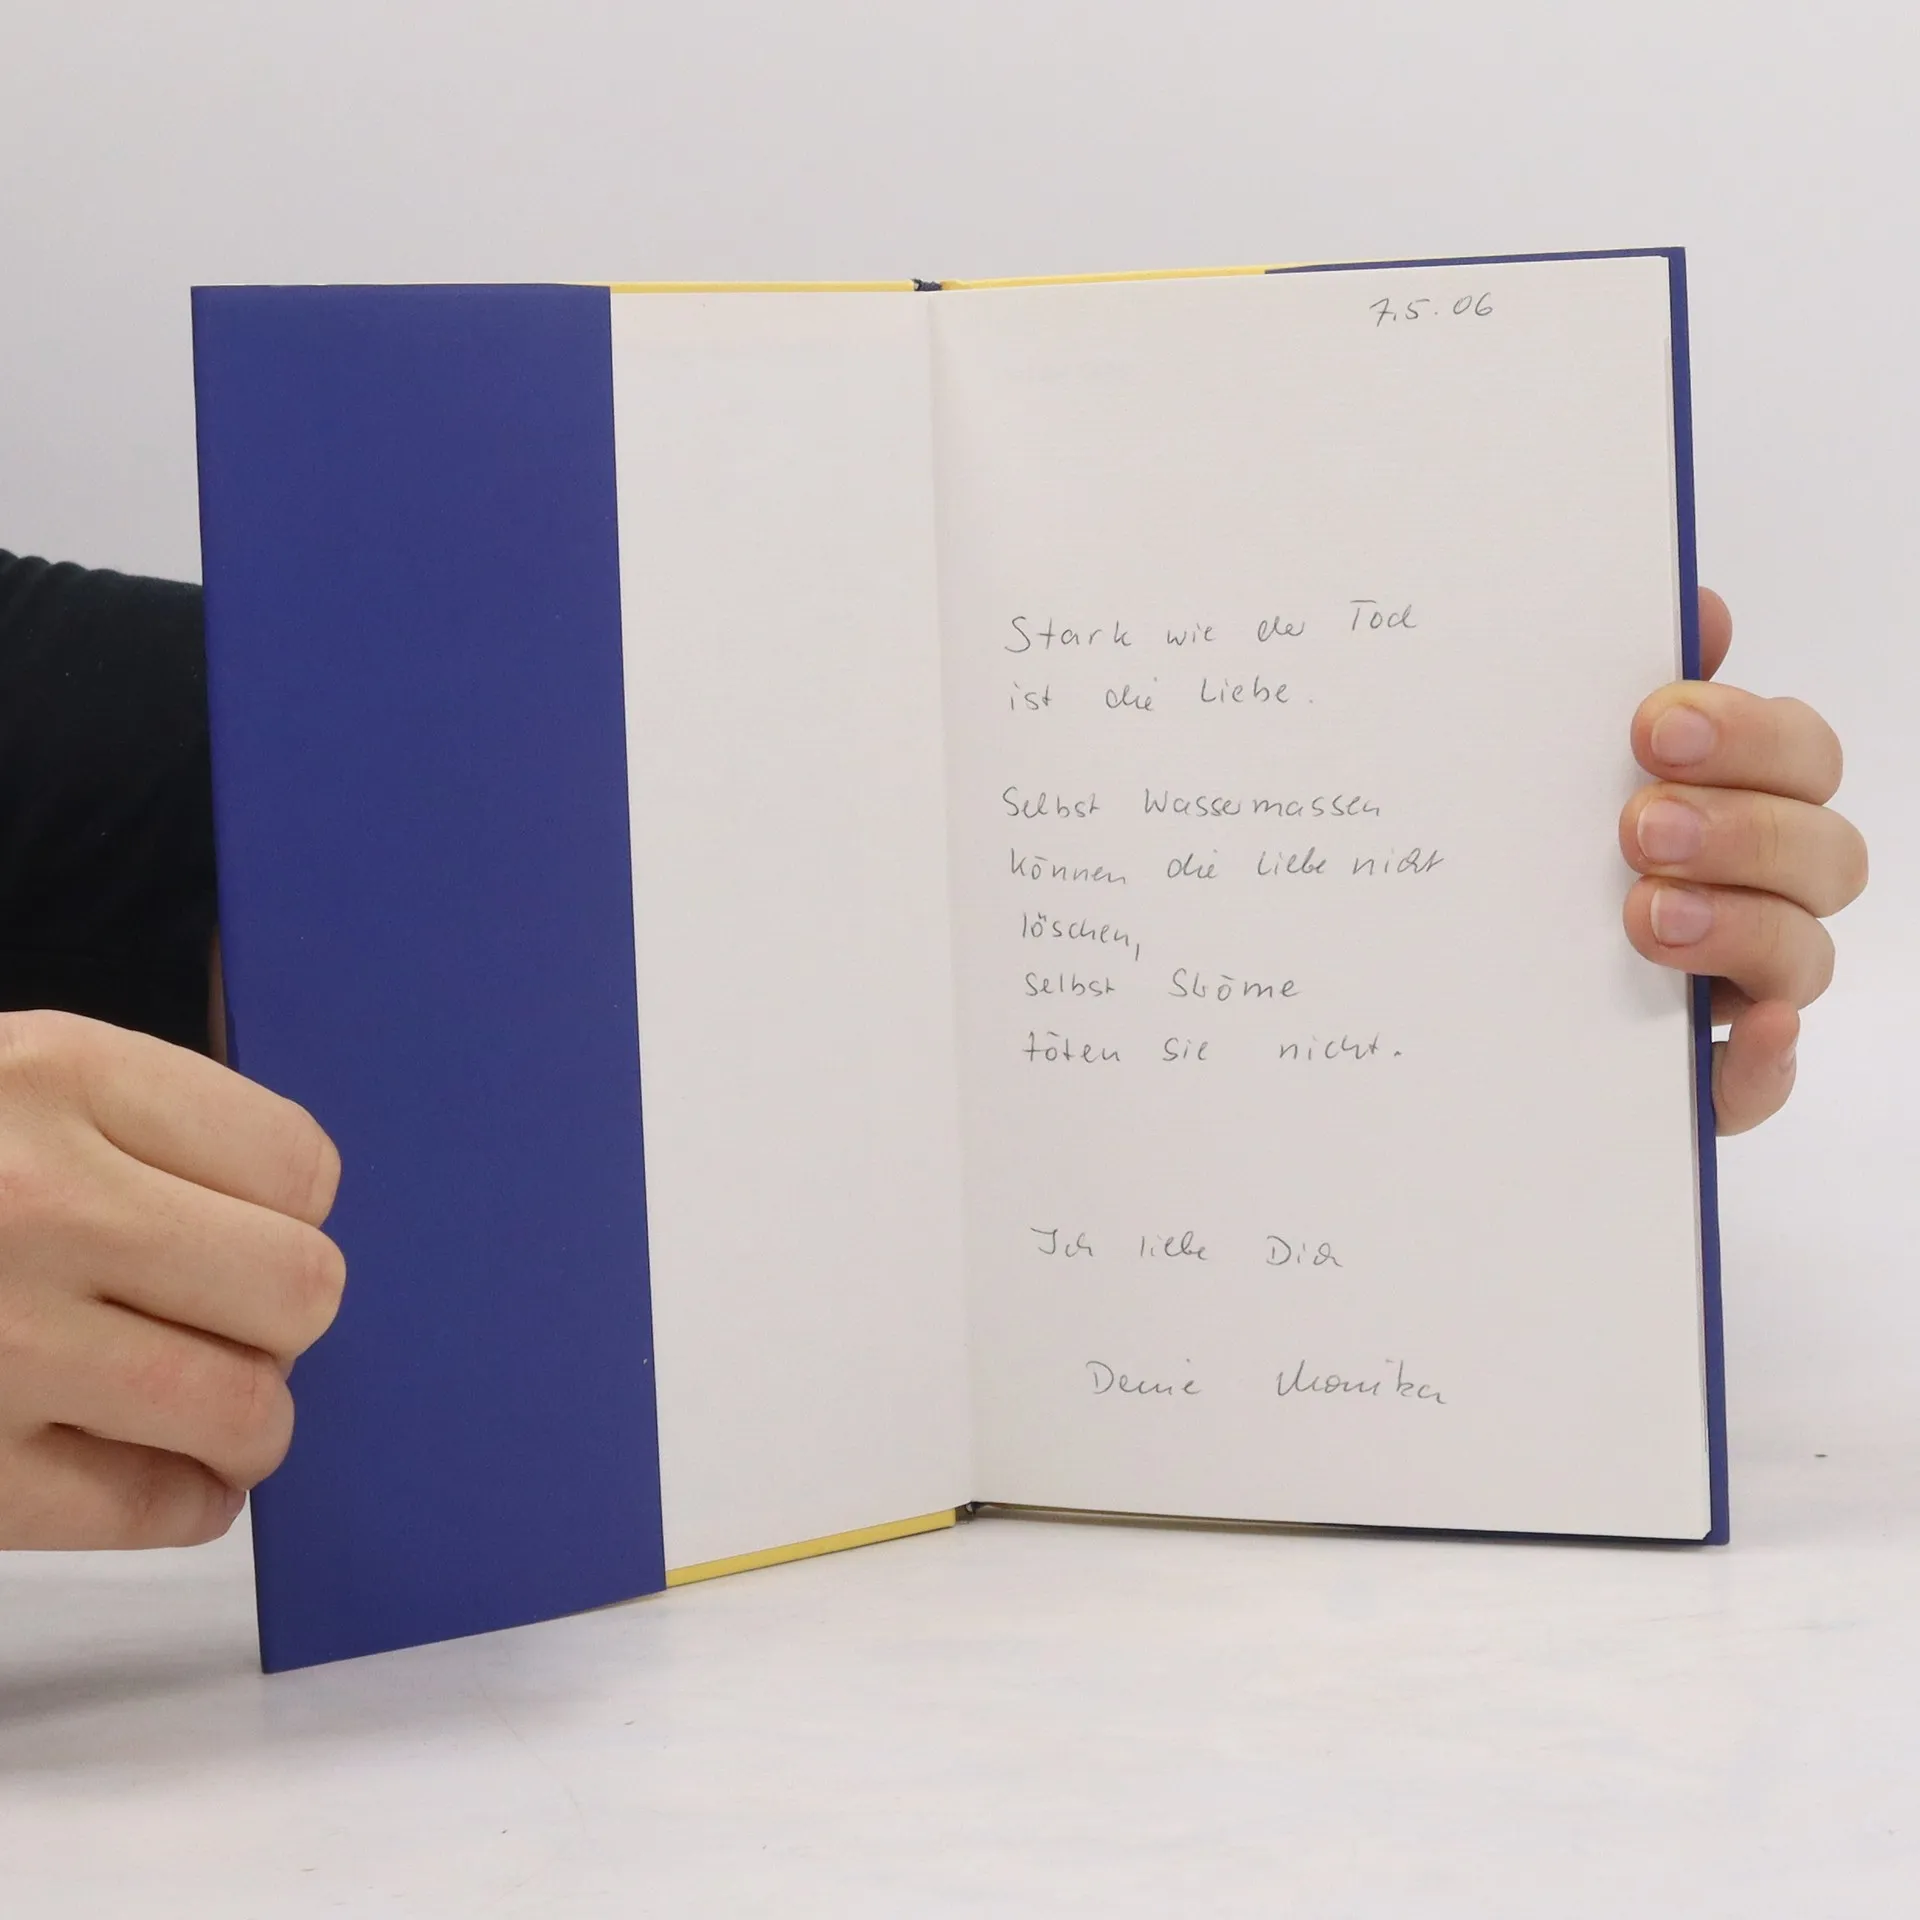 7.5.06
Stark wie der Tod
ist die Liebe.
Selbst Wassermassen
können die Liebe nicht
löschen,
selbst Ströme
töten sie nicht.
Ich liebe Dich
Deine Monika